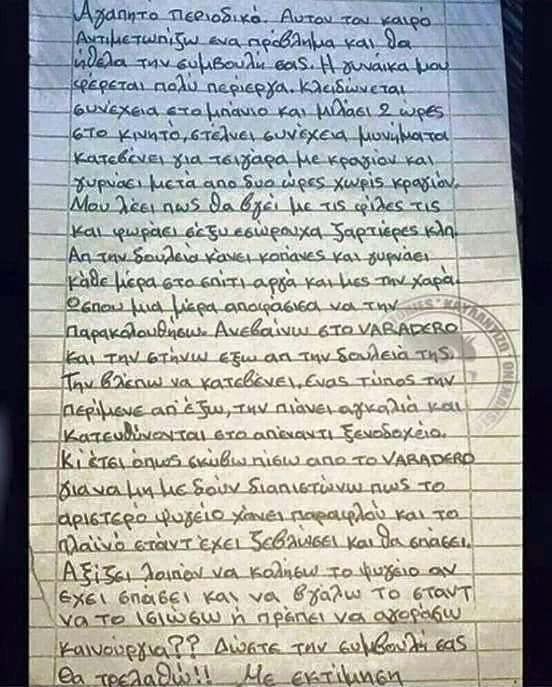 Αγαπητό περιοδικό. Αυτόν τον καιρό
Αντιμετωπίζω ένα πρόβλημα και θα
ήθελα την συμβουλή σας. Η γυναίκα μου
φέρεται πολύ περίεργα. Κλειδώνεται
συνέχεια στο μπάνιο και μιλάει 2 ώρες
στο κινητό, στέλνει συνέχεια μυνήματα
κατεβένει για τσιγάρα με κραγιόν και
γυρνάει μετά από δυο ώρες χωρίς κραγιόν.
Μου λέει πως θα βγεί με τις φίλες τις
και φωράει σέξυ εσώρουχα ζαρτιέρες κλπ.
Απ την δουλειά κάνει κοπάνες και γυρνάει
κάθε μέρα στο σπίτι αργά και μες την χαρά.
Ώσπου μια μέρα αποφάσισα να την
παρακολουθήσω. Ανεβαίνω στο VARADERO
και την στήνω έξω απ την δουλειά της.
Την βλέπω να κατεβένει. Ένας τύπος την
περίμενε απ' έξω, την πιάνει αγκαλιά και
κατευθύνονται στο απέναντι ξενοδοχείο.
Κι έτσι όπως σκύβω πίσω απο το VARADERO
για να μη με δούν διαπιστώνω πως το
αριστερό ψυγείο χάνει παραφλού και το
πλαϊνό στάντ έχει ξεβιδώσει και θα σπάσει.
Αξίζει λοιπόν να κολήσω το ψυγείο αν
έχει σπάσει και να βγάλω το σταντ
να το ισιώσω ή πρέπει να αγοράσω
καινούργια?? Δώστε την συμβουλή σας
θα τρελαθώ!! Με εκτίμηση